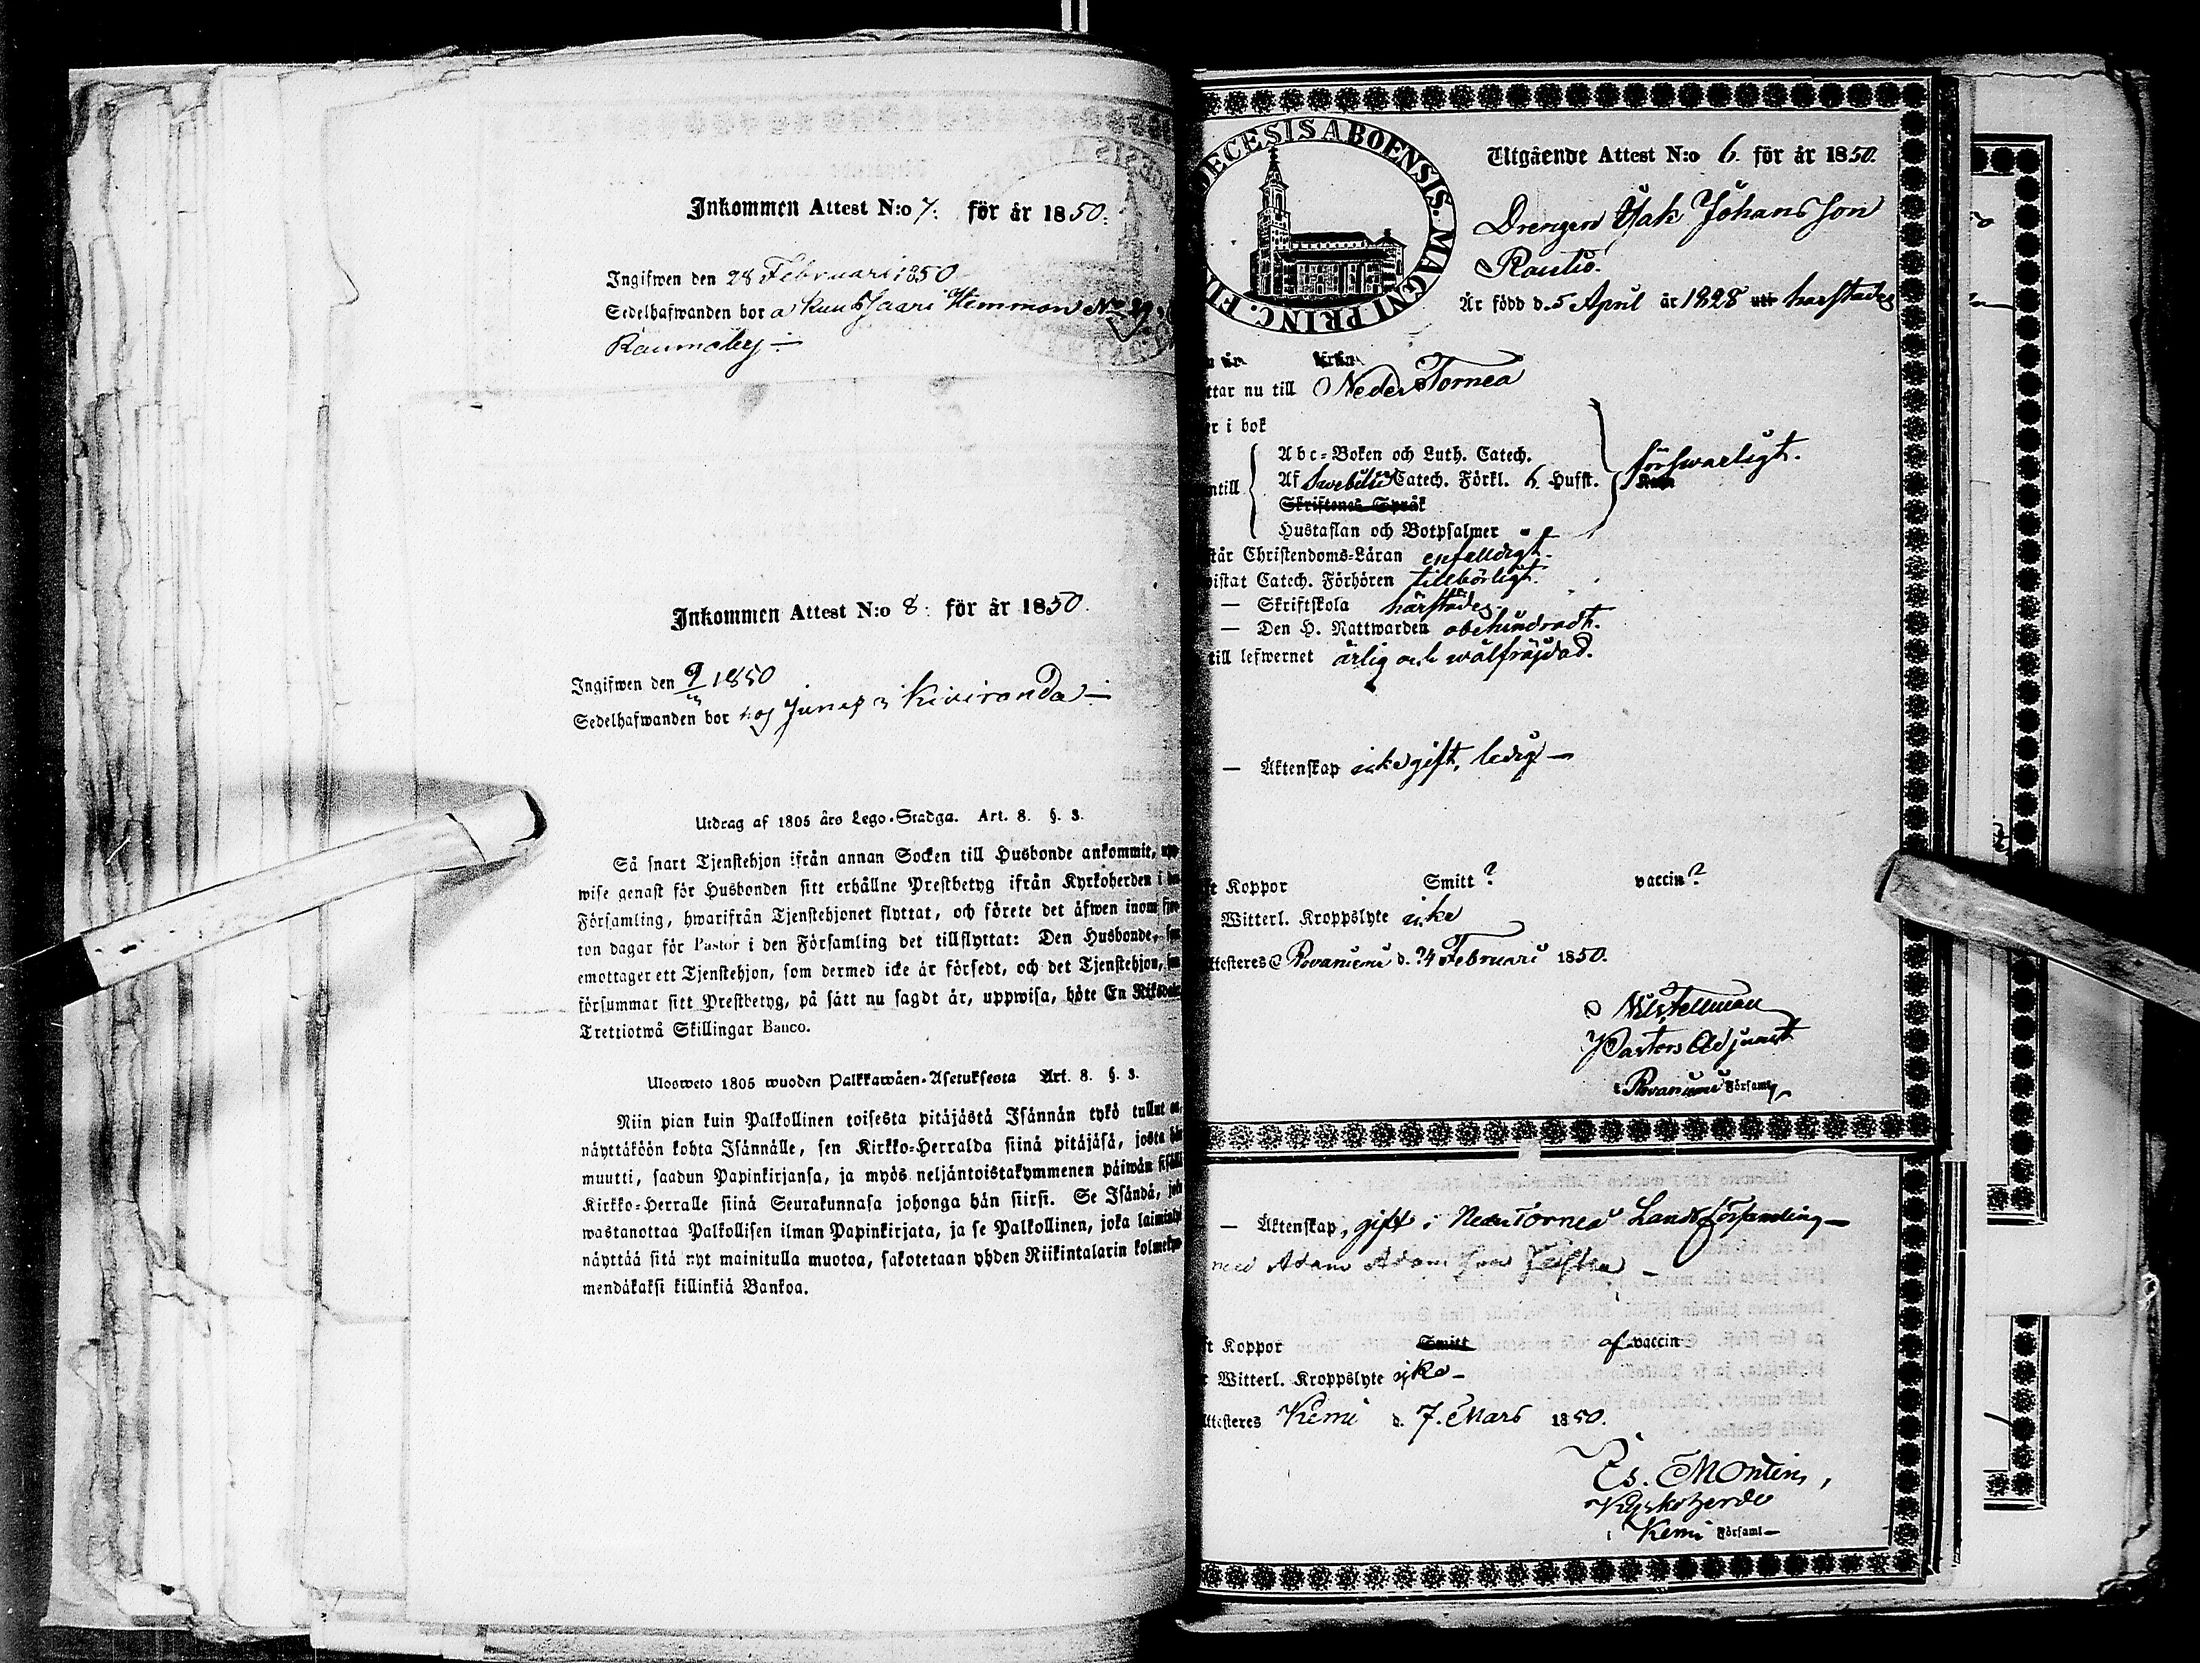 Inkommen Attest N:o 7. för år 1850.
Ingifwen den 28 Februari 1850
Sedelhafwanden bor a
Raumoby
Inkommen Attest N:o 8: för år 1850.
Ingifwen den 9/3 1850
Sedelhafwanden bor hos Junes i Kiviranda
Utdrag af 1805 års Lego-Stadga. Art. 8. §. 3.
Så snart Tjenstehjon ifrån annan Socken till Husbonde ankommit, upp-
wise genast för Husbonden sitt erhållne Prestbetyg ifrån Kyrkoherden i
Församling, hwarifrån Tjenstehjonet flyttat, och förete det äfwen inom fjor-
ton dagar för Pastor i den Församling det tillflyttat: Den Husbonde, som
emottager ett Tjenstehjon, som dermed icke är försedt, och det Tjenstehjon, som
försummar sitt Prestbetyg, på sätt nu sagdt är, uppwisa, böte En Riksdaler
Trettiotwå Skillingar Banco.
Ulosweto 1805 wuoden Palkkawäen-Asetuksesta Art. 8. §. 3.
Niin pian kuin Palkollinen toisesta pitäjästä Isännän tykö tullut on,
näyttäköön kohta Isännälle, sen Kirkko-Herralda siinä pitäjäsä, josta hän
muutti, saadun Papinkirjansa, ja myös neljäntoistakymmenen päiwän sisällä
Kirkko-Herralle siinä Seurakunnasa johonga hän siirsi. Se Isändä, joka
wastanottaa Palkollisen ilman Papinkirjata, ja se Palkollinen, joka laiminlyö
näyttää sitä nyt mainitulla muotoa, sakotetaan yhden Riikintalarin kolmekym-
mendäkaksi killinkiä Bankoa.
DECESIS ABOENSIS. MAGNI PRINC. FI
Utgående Attest N:o 6. för år 1850.
Drengen Isak Johansson
Rautio.
Är född d. 5 April år 1828 uti härstädes
ttar nu till Neder Tornea
er i bok
Abc-Boken och Luth. Catech.
ntill Af Swebilii Catech. Förkl. 6 Hufst. försvarligt.
Skriftenes Språk
Hustaflan och Botpsalmer
står Christendoms-Läran enfaldigt.
vistat Catech. Förhören tillbörligt.
— Skriftskola härstädes
— Den H. Nattwarden obehindradt.
till lefwernet ärlig och wälfräjdad.
— Äktenskap icke gift, ledig —
ft Koppor Smitt? vaccin?
Witterl. Kroppslyte icke
ttesteres Rovaniemi d. 24 Februari 1850.
Nils Fellman
Pastors Adjunct
i Rovaniemi Församl
— Äktenskap, gift i Neder Tornea Landsförsamling —
med Adam Adamsson
ft Koppor Smitt af vaccin
t Witterl. Kroppslyte icke —
ttesteres Kemi d. 7. Mars 1850.
Es. Montin,
Kyrkoherde
i Kemi Församl —